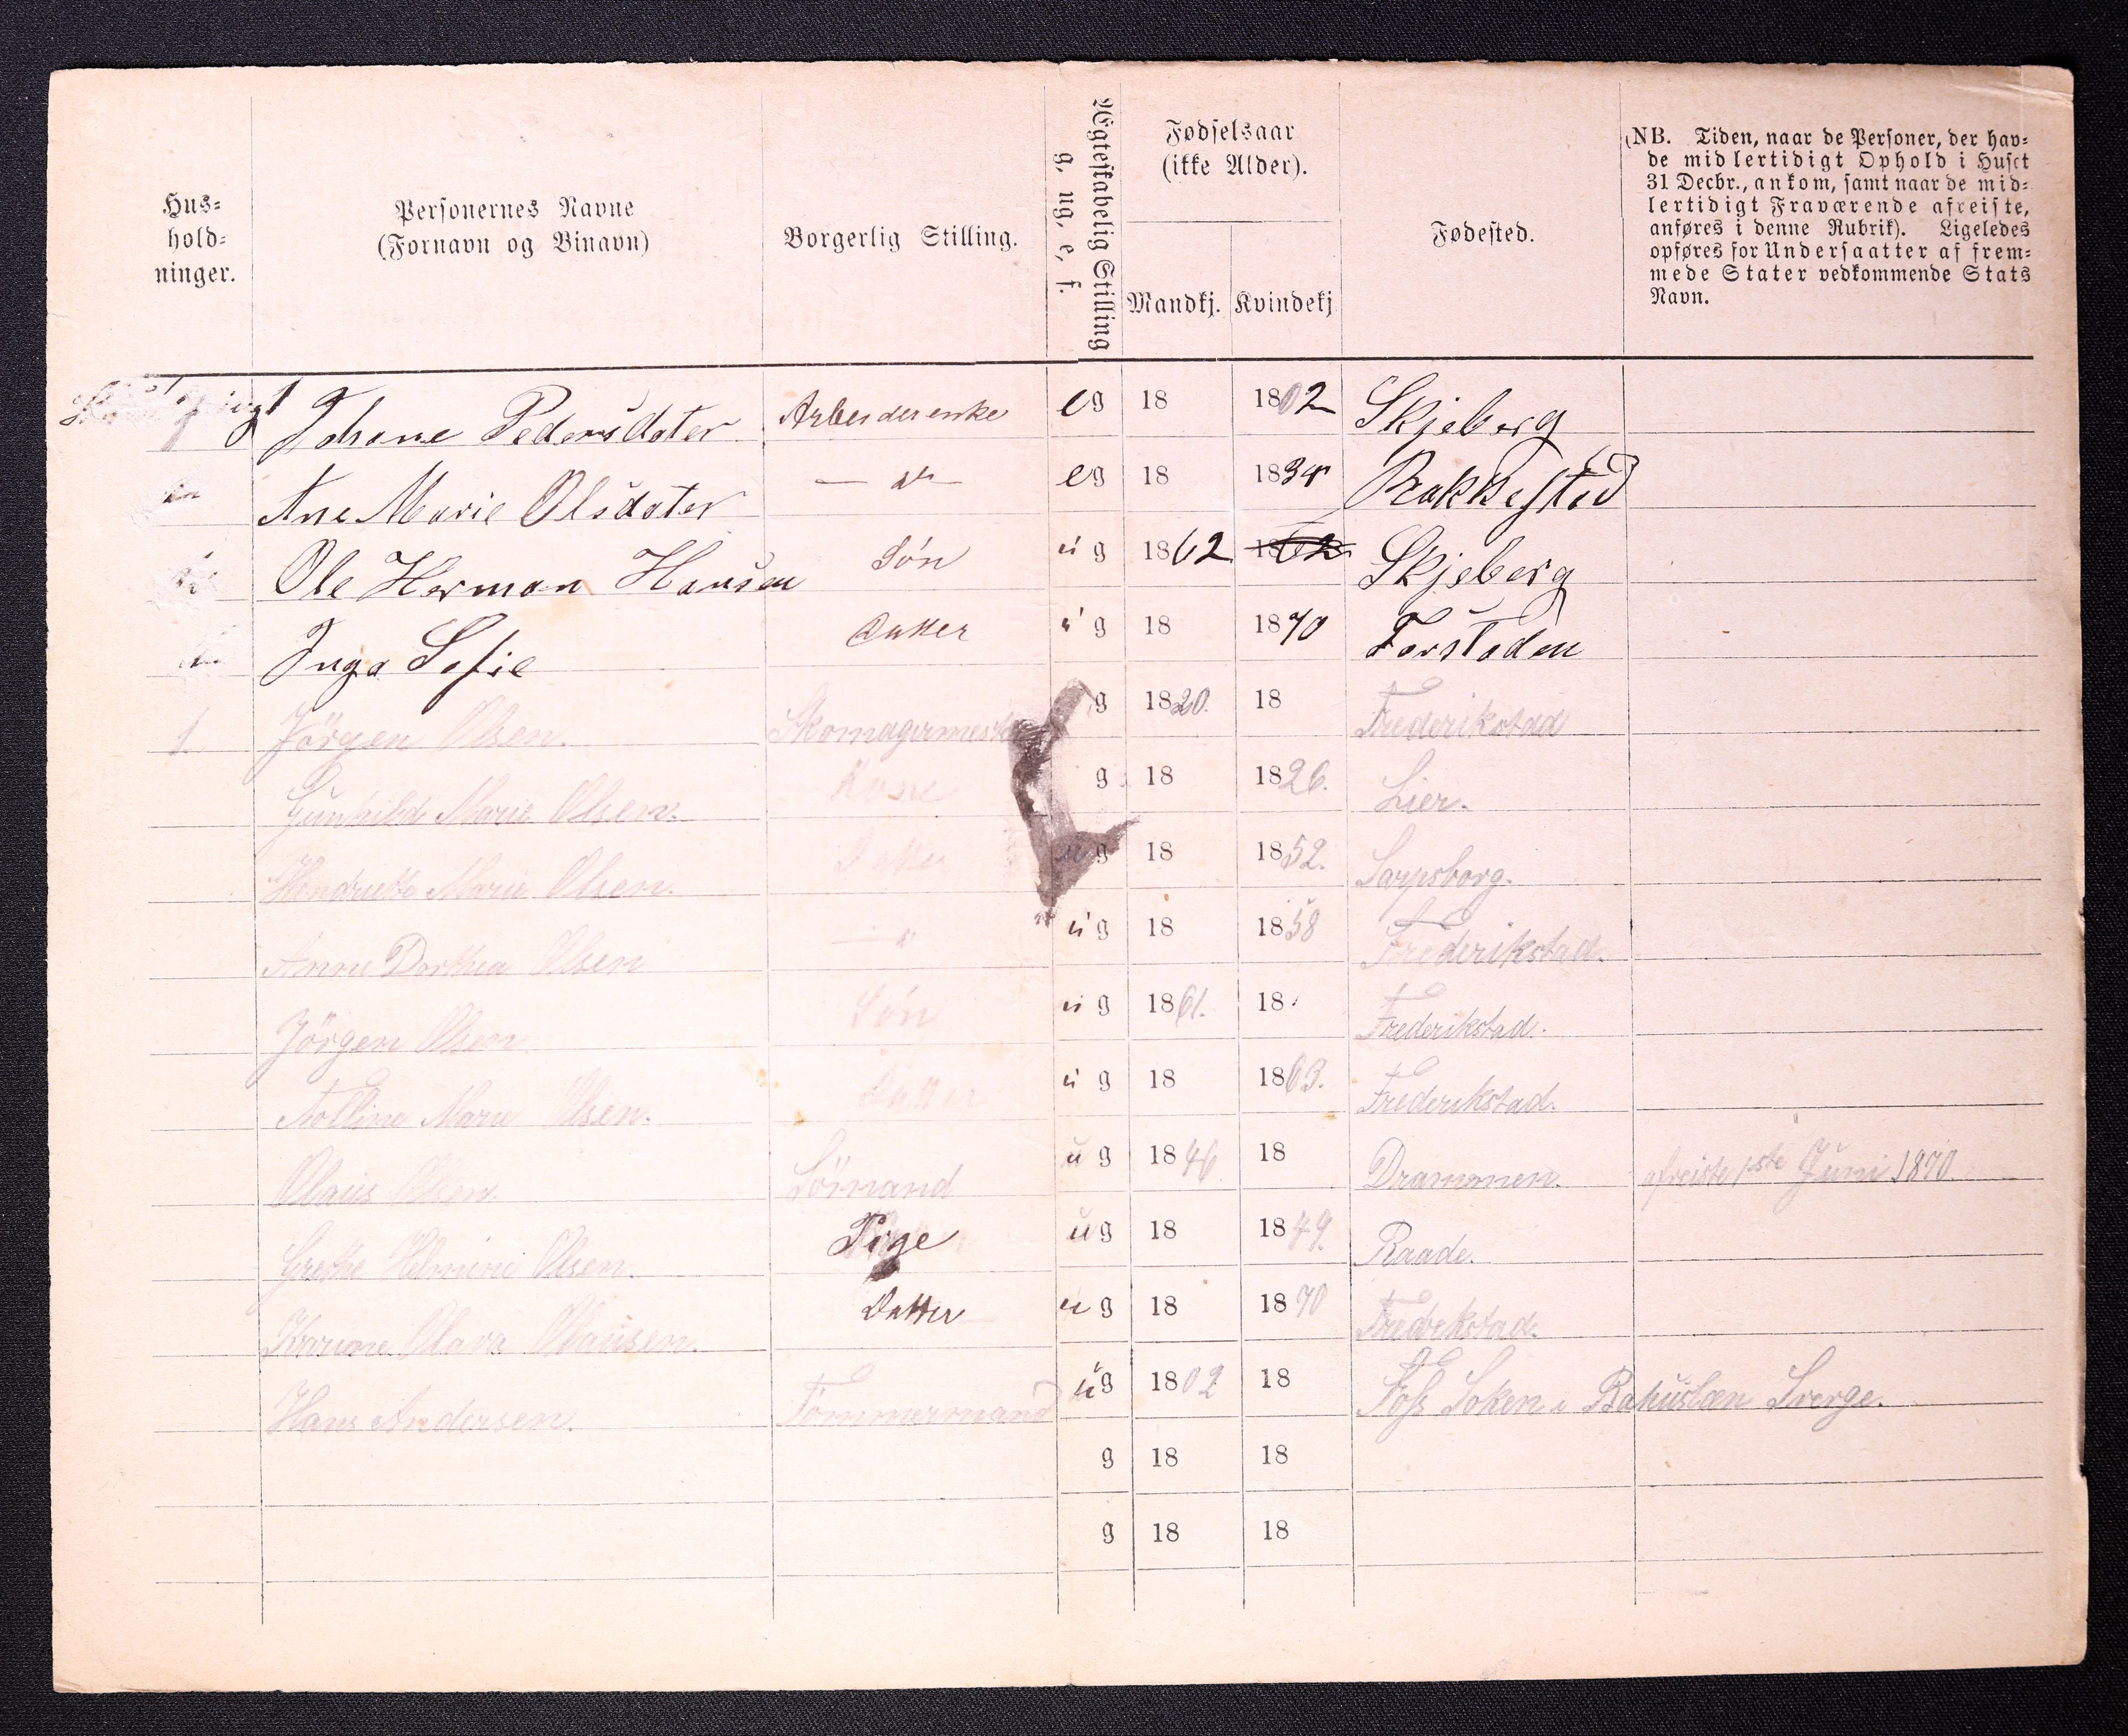 Hus-
hold-
ninger.
Personernes Navne
(Fornavn og Binavn)
Borgerlig Stilling.
Ægteskabelig Stilling
g, ug, e, f.
Fødselsaar
(ikke Alder).
Mandkj. Kvindekj
Fødested.
(NB. Tiden, naar de Personer, der hav-
de midlertidigt Ophold i Huset
31 Decbr., ankom, samt naar de mid-
lertidigt Fraværende afreiste,
anføres i denne Rubrik). Ligeledes
opføres for Undersaatter af frem-
mede Stater vedkommende Stats
Navn.
1 Johane Pedersdater Arbeiderenke eg 18 1802 Skjeberg
Ane Marie Olsdater — " — eg 18 1834 Rakkestad
Ole Herman Hansen Søn ug 1862 1862 Skjeberg
Inga Sofie Datter ug 18 1870 Forstaden
1 Jörgen Olsen. Skomagermester g 1820. 18 Frederikstad
Gunhilde Marie Olsen. Kone g 18 1826. Lier.
Hendrikke Marie Olsen. Datter ug 18 1852. Sarpsborg.
Anne Dorthea Olsen — " ug 18 1858 Frederikstad.
Jörgen Olsen Søn ug 1861. 18 Frederikstad.
Marie Olsen. Datter ug 18 1863. Frederikstad.
Olaus Olsen. Sömand ug 1846 18 Drammen. afreiste 1ste Juni 1870.
Grethe Helmine Olsen. Pige ug 18 1849. Raade.
Karine Olava Olausen. Datter ug 18 1870 Fredrikstad.
Hans Andersen. Tömmermand ug 1802 18 Foss Soken i Bahuslæn Sverge.
g 18 18
g 18 18